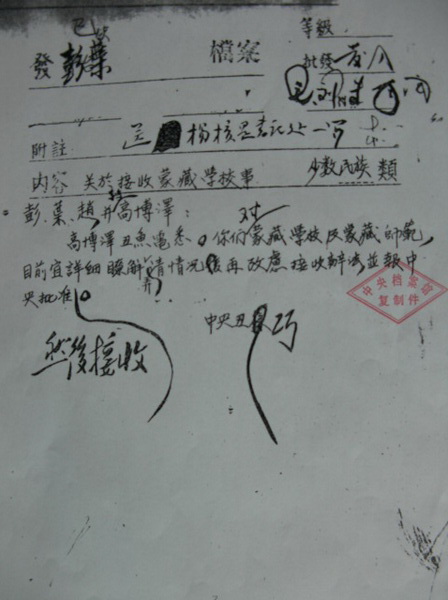 已发
等級
發 彭葉 檔案
批發
附註 送 楊核 書記处一阅
内容 关於接收蒙藏学校事 少数民族 類
彭、葉、趙并高博澤：
高博澤丑魚電悉。你们对蒙藏学校及蒙藏師範，
目前宜詳細瞭解清情况後再攷慮接收辦法並報中
央批准
中央丑巧
然後接收
中央档案馆
复制件